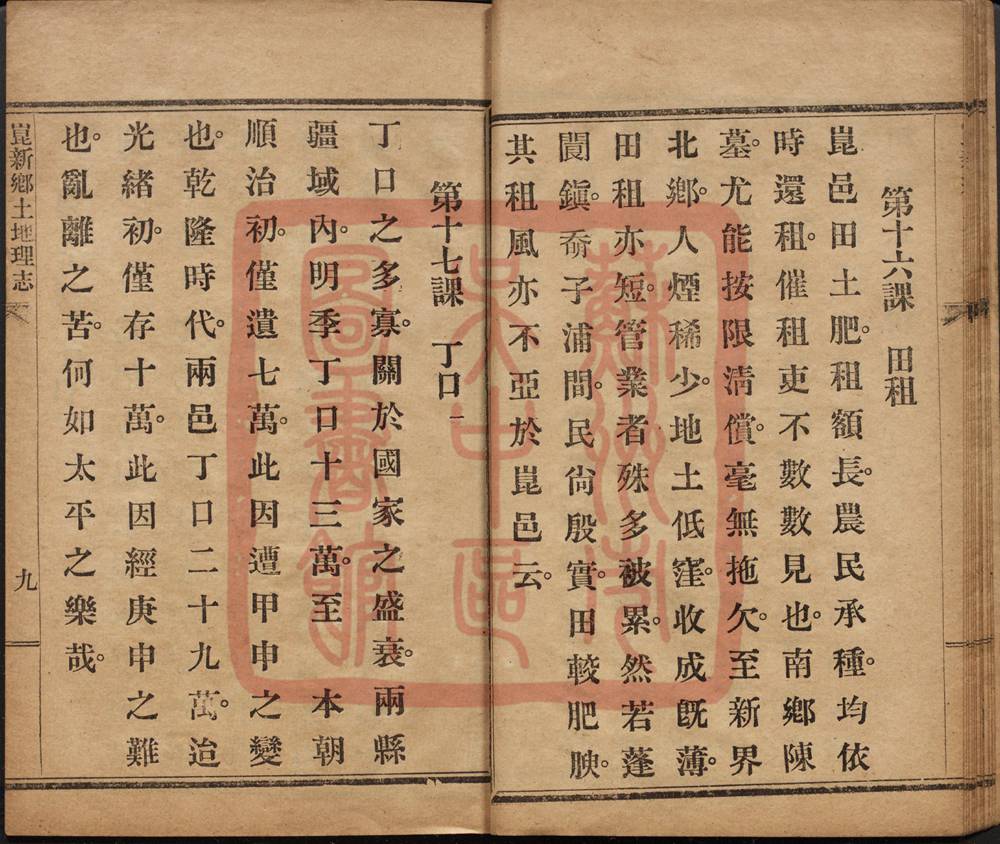 第十六課　田租
崑邑田土肥。租額長。農民承種。均依
時還租。催租吏不數數見也。南鄉陳
墓。尤能按限淸償。毫無拖欠。至新界
北鄉。人煙稀少。地土低窪。收成旣薄。
田租亦短。管業者殊多被累。然若蓬
閬鎭。奣子浦間。民尙殷實。田較肥腴。
其租風亦不亞於崑邑云。
第十七課　丁口一
丁口之多寡。關於國家之盛衰。兩縣
疆域內。明季丁口十三萬。至　本朝
順治初。僅遺七萬。此因遭甲申之變
也。乾隆時代。兩邑丁口二十九萬。迨
光緖初。僅存十萬。此因經庚申之難
也。亂離之苦。何如太平之樂哉。
崑新鄉土地理志
九
蘇州市
吳中區
圖書館